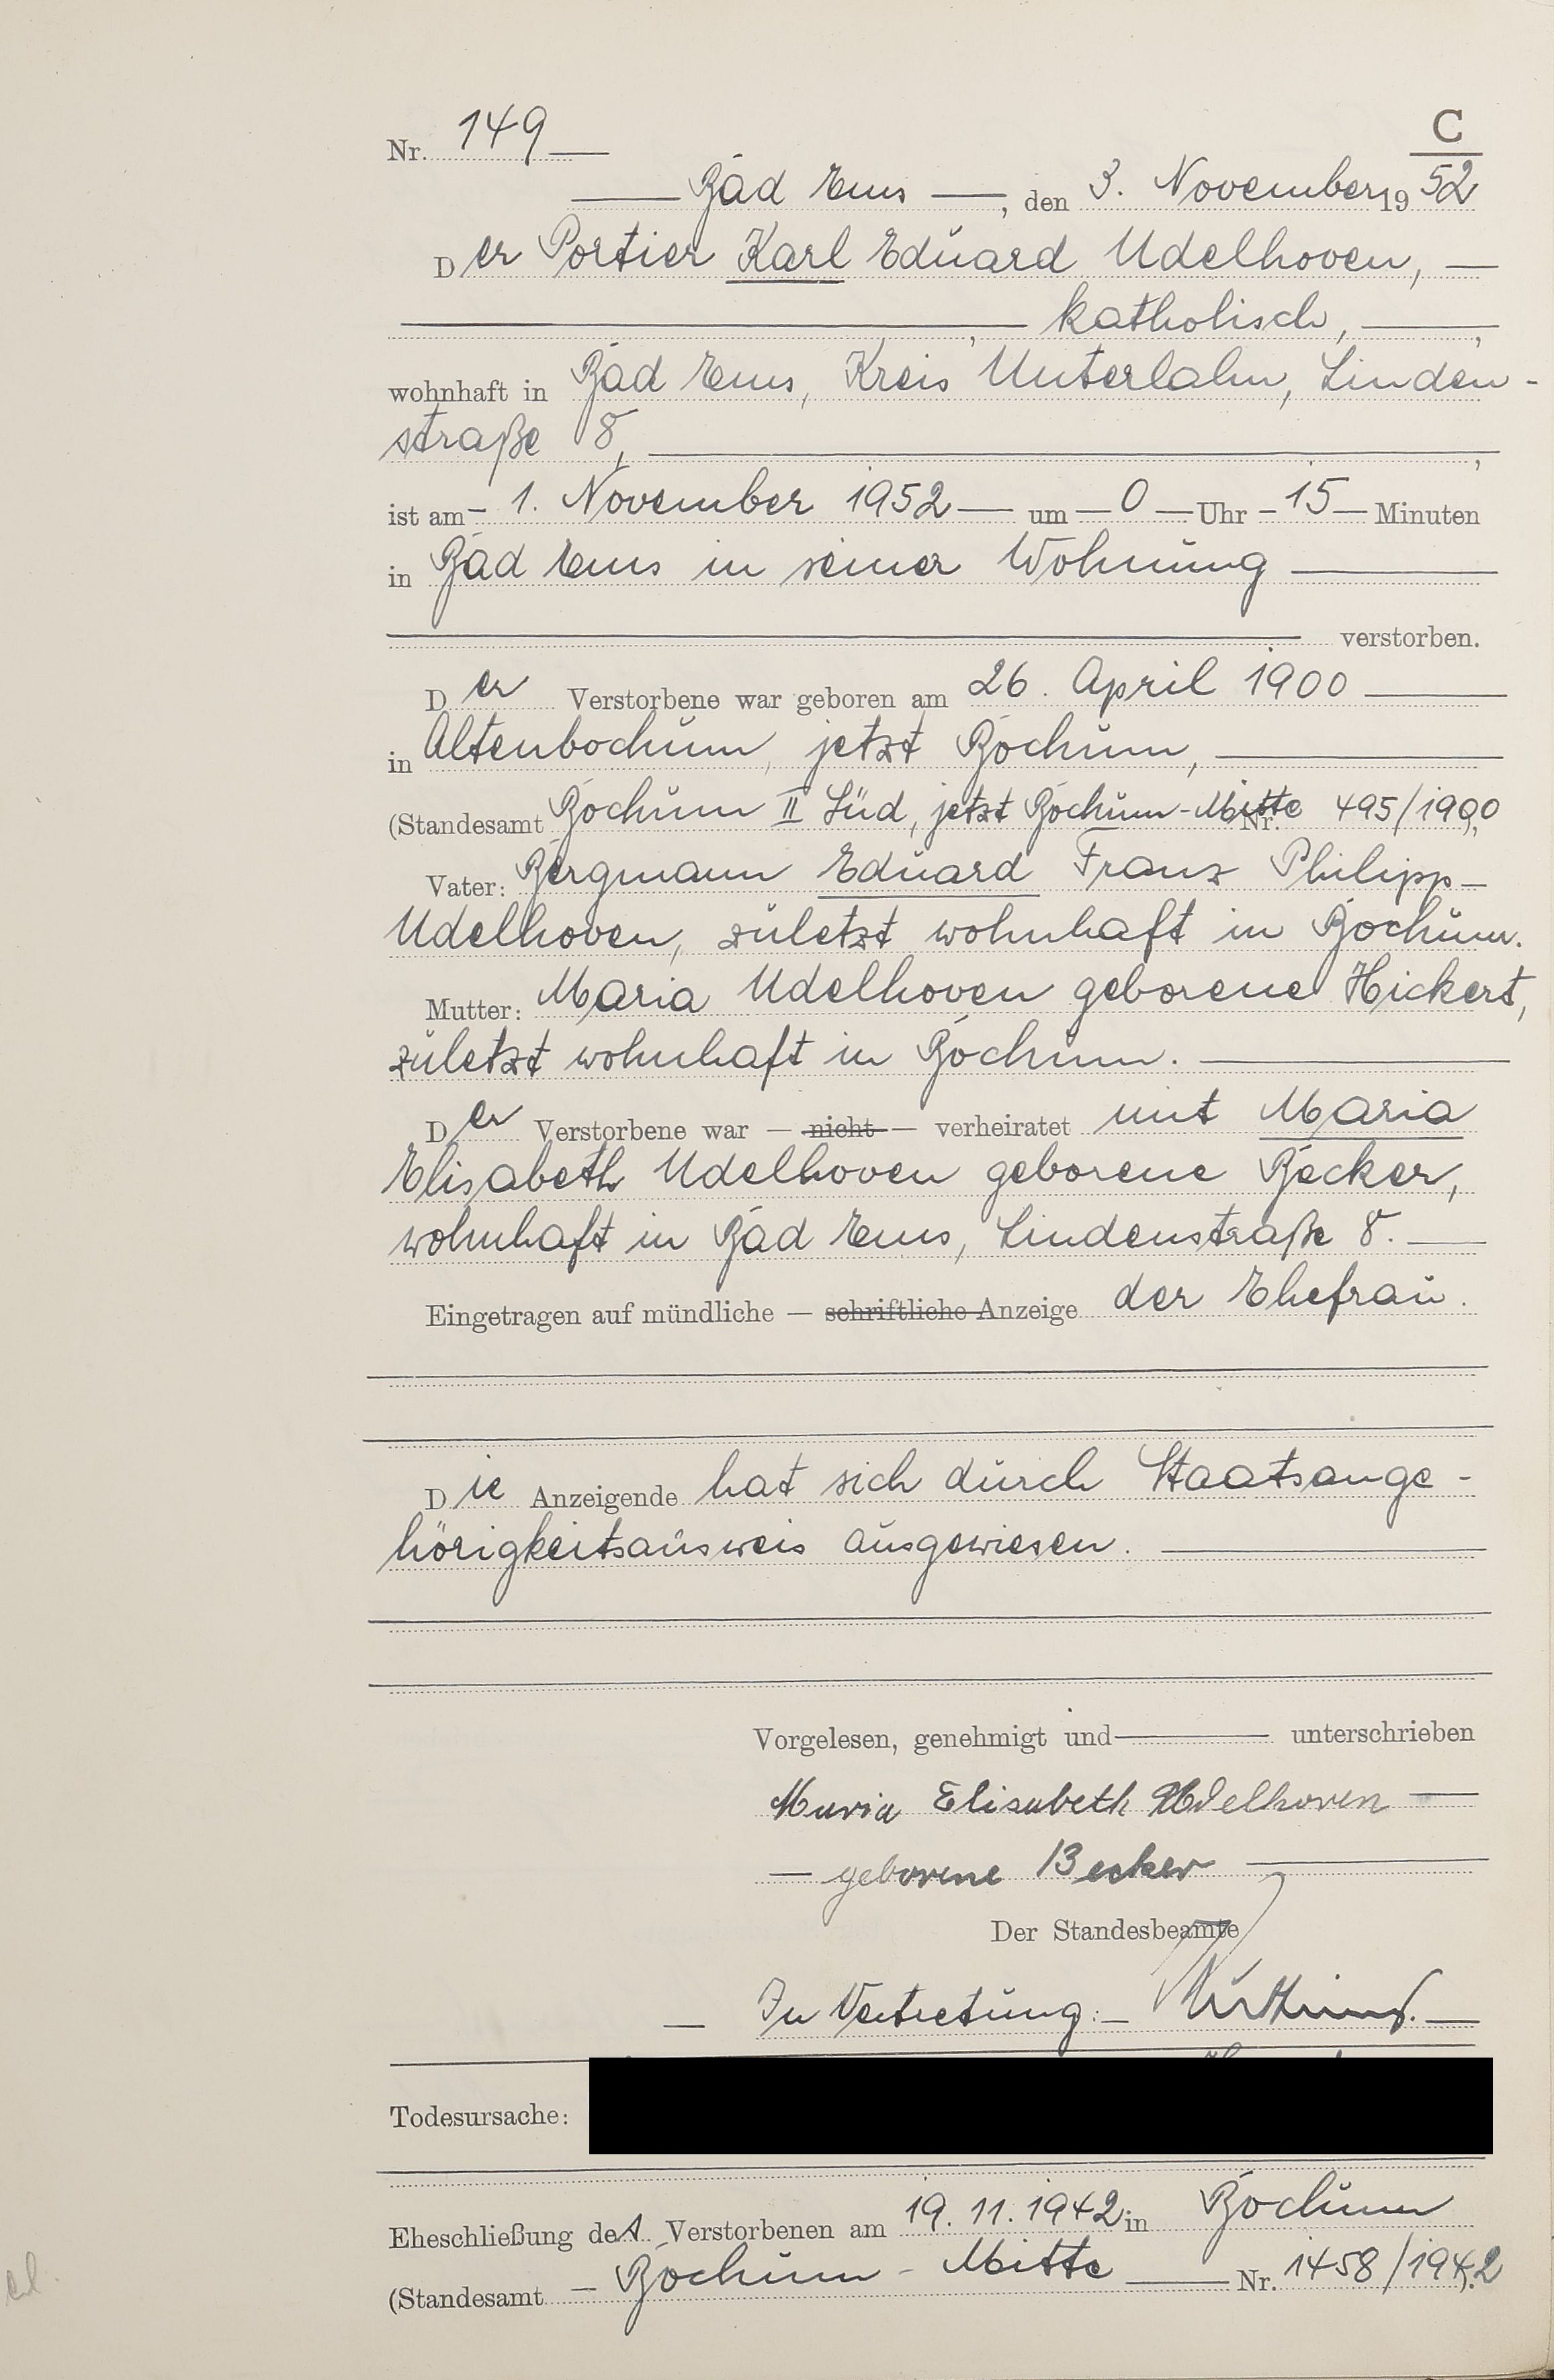 Nr. 149
C
Bad Ems, den 3. November 1952
Der Portier Karl Eduard Udelhoven,
katholisch,
wohnhaft in Bad Ems, Kreis Unterlahn, Linden-
straße 8,
ist am 1. November 1952 um 0 Uhr 15 Minuten
in Bad Ems in seiner Wohnung
verstorben.
Der Verstorbene war geboren am 26. April 1900
in Altenbochum, jetzt Bochum,
(Standesamt Bochum II Süd, jetzt Bochum-Mitte Nr. 495/1900)
Vater: Bergmann Eduard Franz Philipp
Udelhoven, zuletzt wohnhaft in Bochum.
Mutter: Maria Udelhoven geborene Hickert,
zuletzt wohnhaft in Bochum.
Der Verstorbene war — nicht — verheiratet mit Maria
Elisabeth Udelhoven geborene Becker,
wohnhaft in Bad Ems, Lindenstraße 8.
Eingetragen auf mündliche — schriftliche Anzeige der Ehefrau.
Die Anzeigende hat sich durch Staatsange-
hörigkeitsausweis ausgewiesen.
Vorgelesen, genehmigt und unterschrieben
Maria Elisabeth Udelhoven
geborene Becker
Der Standesbeamte
In Vertretung:
Todesursache:
Eheschließung des Verstorbenen am 19.11.1942 in Bochum
(Standesamt Bochum-Mitte Nr. 1458/1942)